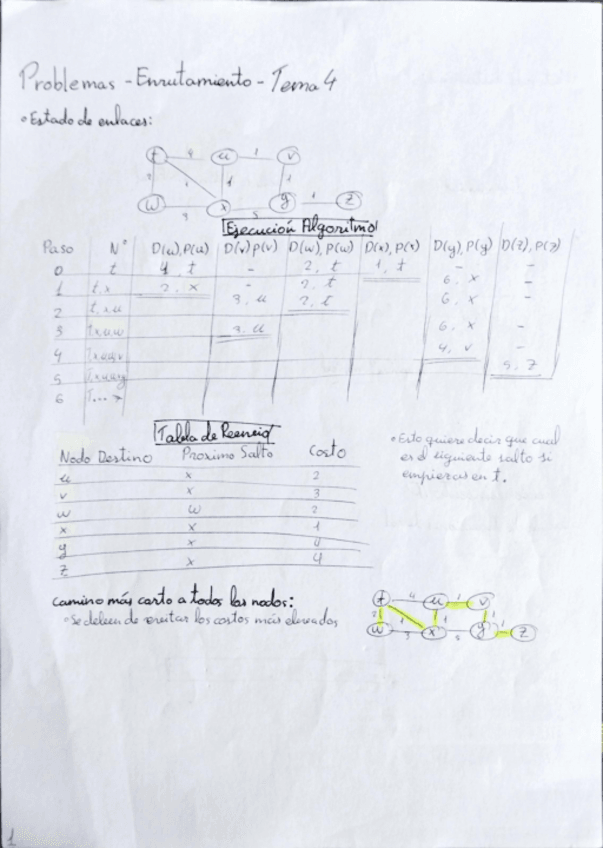 Problemas - Enrutamiento - Tema 4
• Estado de enlaces:
t 4 u 1 v
2 1 1 1
w 3 x 5 y 1 z
Ejecución Algoritmo
Paso N° D(u),P(u) D(v)P(v) D(w),P(w) D(x),P(x) D(y),P(y) D(z),P(z)
0 t 4, t - 2, t 1, t - -
1 t,x 2, x - 2, t 6, x -
2 t,x,u 3, u 2, t 6, x -
3 t,x,u,w 3, u 6, x -
4 4, v -
5 5, z
6 T...
Tabla de Reenvio
Nodo Destino Proximo Salto Costo
u x 2
v x 3
w w 2
x x 1
y x 4
z x 4
• Esto quiere decir que cual
es el siguiente salto si
empiezas en t.
camino más corto a todos los nodos:
• Se deben de evitar los costos más elevados
t 4 u 1 v
2 1 1 1
w 3 x y 1 z
1